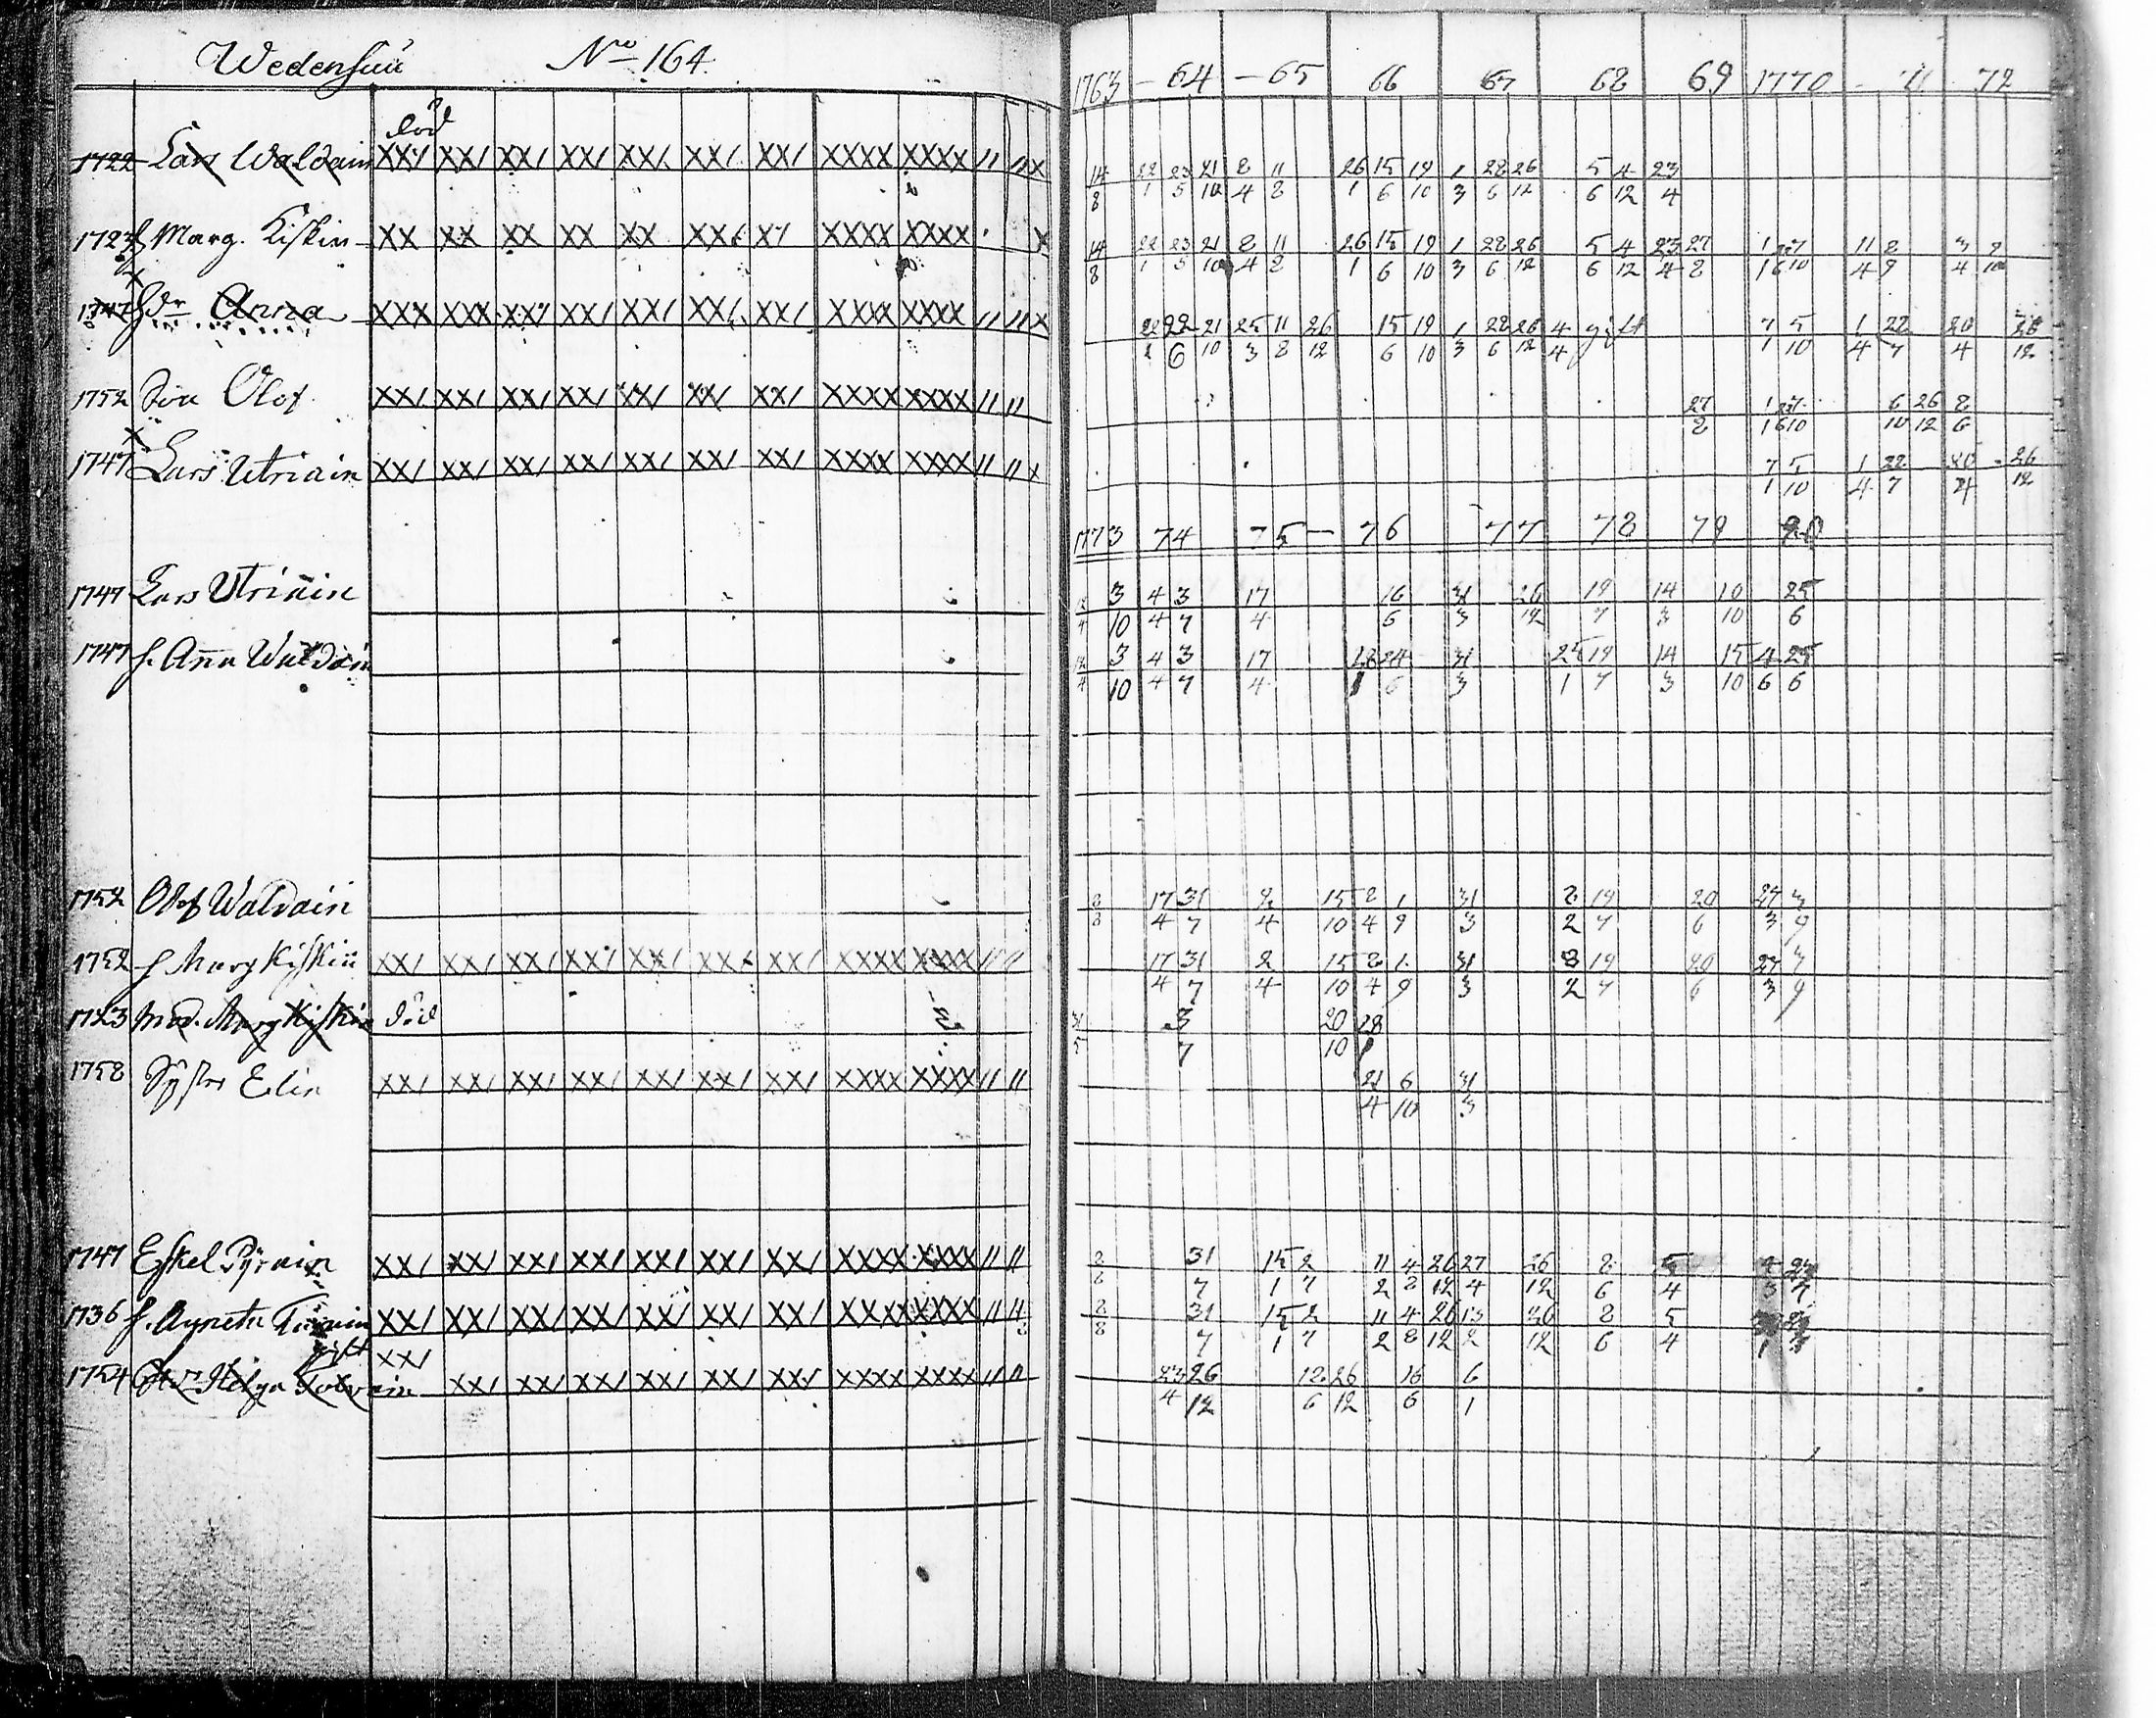 Wedensuu No 164.
1763 - 64 - 65 66 67 68 69 1770 - 71 72
död
1722 Lars Waldain XX/ XX/ XX/ XX/ XX/ XX/ XX/ XXXX XXXX // // x
14 22 23 21 8 11 26 15 19 1 28 26 5 4 23
8 1 5 10 4 8 1 6 10 3 6 12 6 12 4
1723 h. Marg. Kiskin XX XX XX XX XX XX/ X/ XXXX XXXX
14 22 23 21 8 11 26 15 19 1 28 26 5 4 23 27
8 1 5 10 4 8 1 6 10 3 6 12 6 12 4 8 1 6 10 4 9 4 10
1747 dr Anna XXX XXX XX/ XX/ XX/ XX/ XX/ XXXX XXXX // // x
22 21 25 11 26 15 19 1 28 26 4 gift 7 5 1 22 20 26
6 10 3 8 12 6 10 3 6 12 4 1 10 4 7 4 12
1752 Son Olof XX/ XX/ XX/ XX/ XX/ XX/ XX/ XXXX XXXX // //
27 6 26 8
8 1 6 10 10 12 6
1747 Lars Utriain XX/ XX/ XX/ XX/ XX/ XX/ XX/ XXXX XXXX // // x
7 5 1 22 20 26
1 10 4 7 4 12
1773 74 75 - 76 77 78 79 80
1747 Lars Utriain
12 3 4 3 17 16 31 26 19 14 10 25
4 10 4 7 4 6 3 12 7 3 10 6
1747 h. Anna Waldain
12 3 4 3 17 28 24 31 25 19 14 15 4 25
4 10 4 7 4 1 6 3 1 7 3 10 6 6
1752 Olof Waldain
8 17 31 2 15 8 1 31 8 19 20 27 3
8 4 7 4 10 4 9 3 2 7 6 3 9
1752 h Marg Kiskin XX/ XX/ XX/ XX/ XX/ XX/ XX/ XXXX XXXX // //
17 31 2 15 8 1 31 8 19 20 27 3
4 7 4 10 4 9 3 2 7 6 3 9
1723 Mod. Marg Kiskin död
31 3 20 28
5 7 10 1
1758 Syster Elin XX/ XX/ XX/ XX/ XX/ XX/ XX/ XXXX XXXX // //
21 6 31
4 10 3
1747 Eskel Pyrain XX/ XX/ XX/ XX/ XX/ XX/ XX/ XXXX XXXX // //
8 31 15 2 11 4 26 27 26 8 5
8 7 1 7 2 8 12 4 12 6 4
1736 h. Agneta XX/ XX/ XX/ XX/ XX/ XX/ XX/ XXXX XXXX // //
8 31 15 2 11 4 26 13 26 8 5
8 7 1 7 2 8 12 2 12 6 4
gift
1754 Helga XX/ XX/ XX/ XX/ XX/ XX/ XX/ XXXX XXXX // //
23 26 12 26 16 6
4 12 6 12 6 1